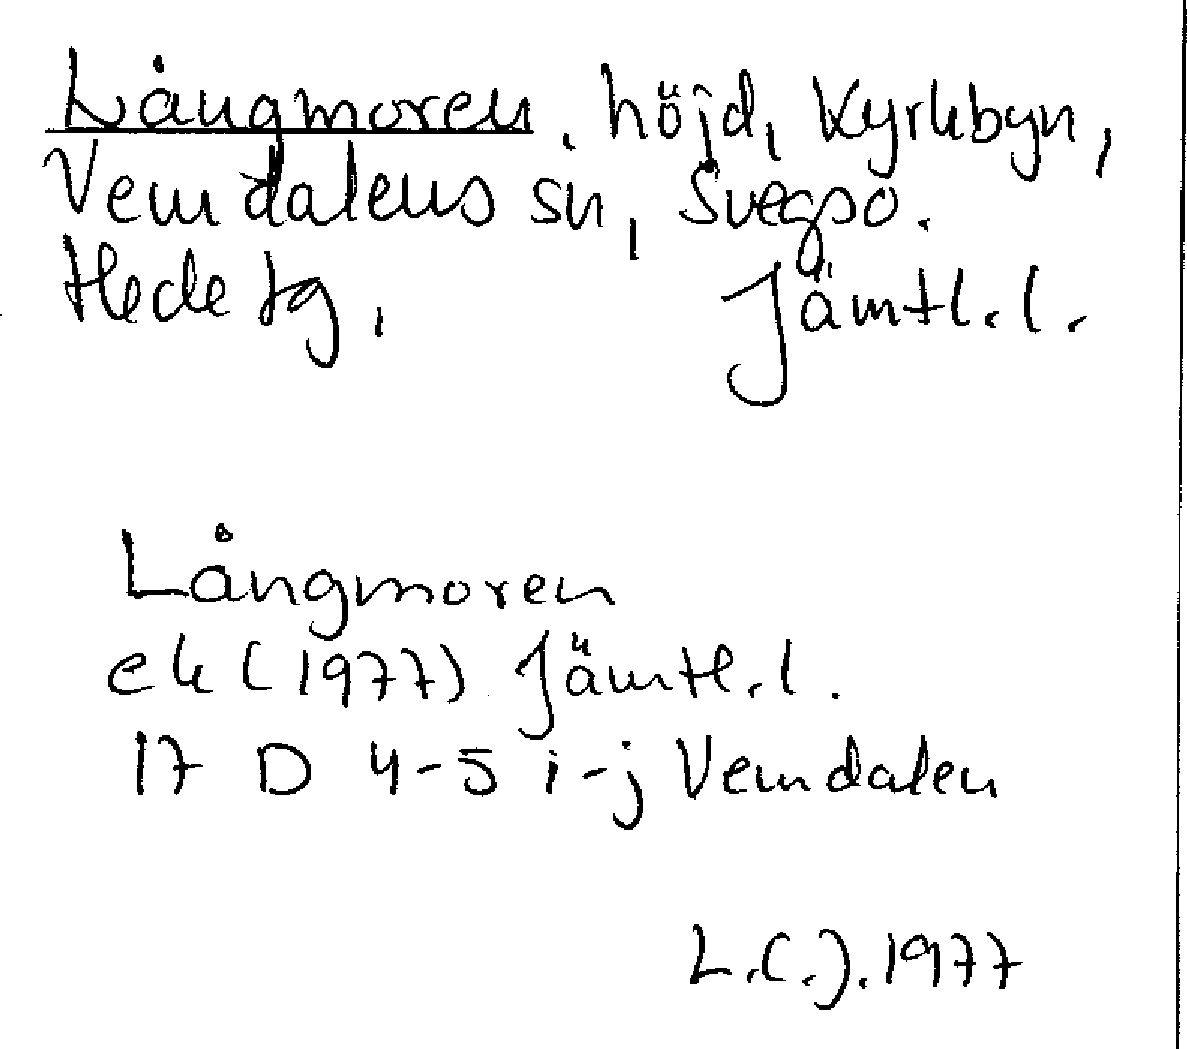 Långmoren, höjd, Kyrkbyn,
Vemdalens sn, Svegs so.
Hede tg, Jämtl. l.
Långmoren
ek (1977) Jämtl. l.
17 D 4-5 i-j Vemdalen
L.C.J. 1977